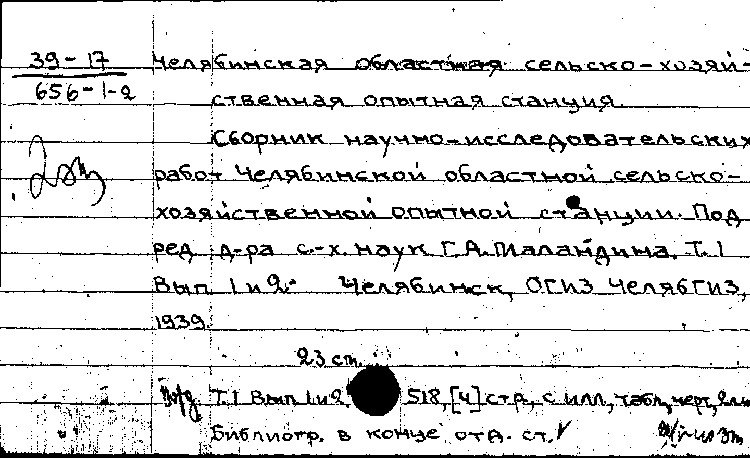 39-17 Челябинская областная сельско-хозяй-
656-1-2 ственная опытная станция.
Сборник научно-исследовательских
работ Челябинской областной сельско-
хозяйственной опытной станции. Под
ред д-ра с.-х. наук Г.А. Маландина. Т. 1
Вып 1 и 2. Челябинск, ОГИЗ Челябгиз,
1939.
23 cm.
Т.1 Вып 1 и 2. 518, [4] стр, с илл, табл, черт,
Библиогр. в конце отд. ст.